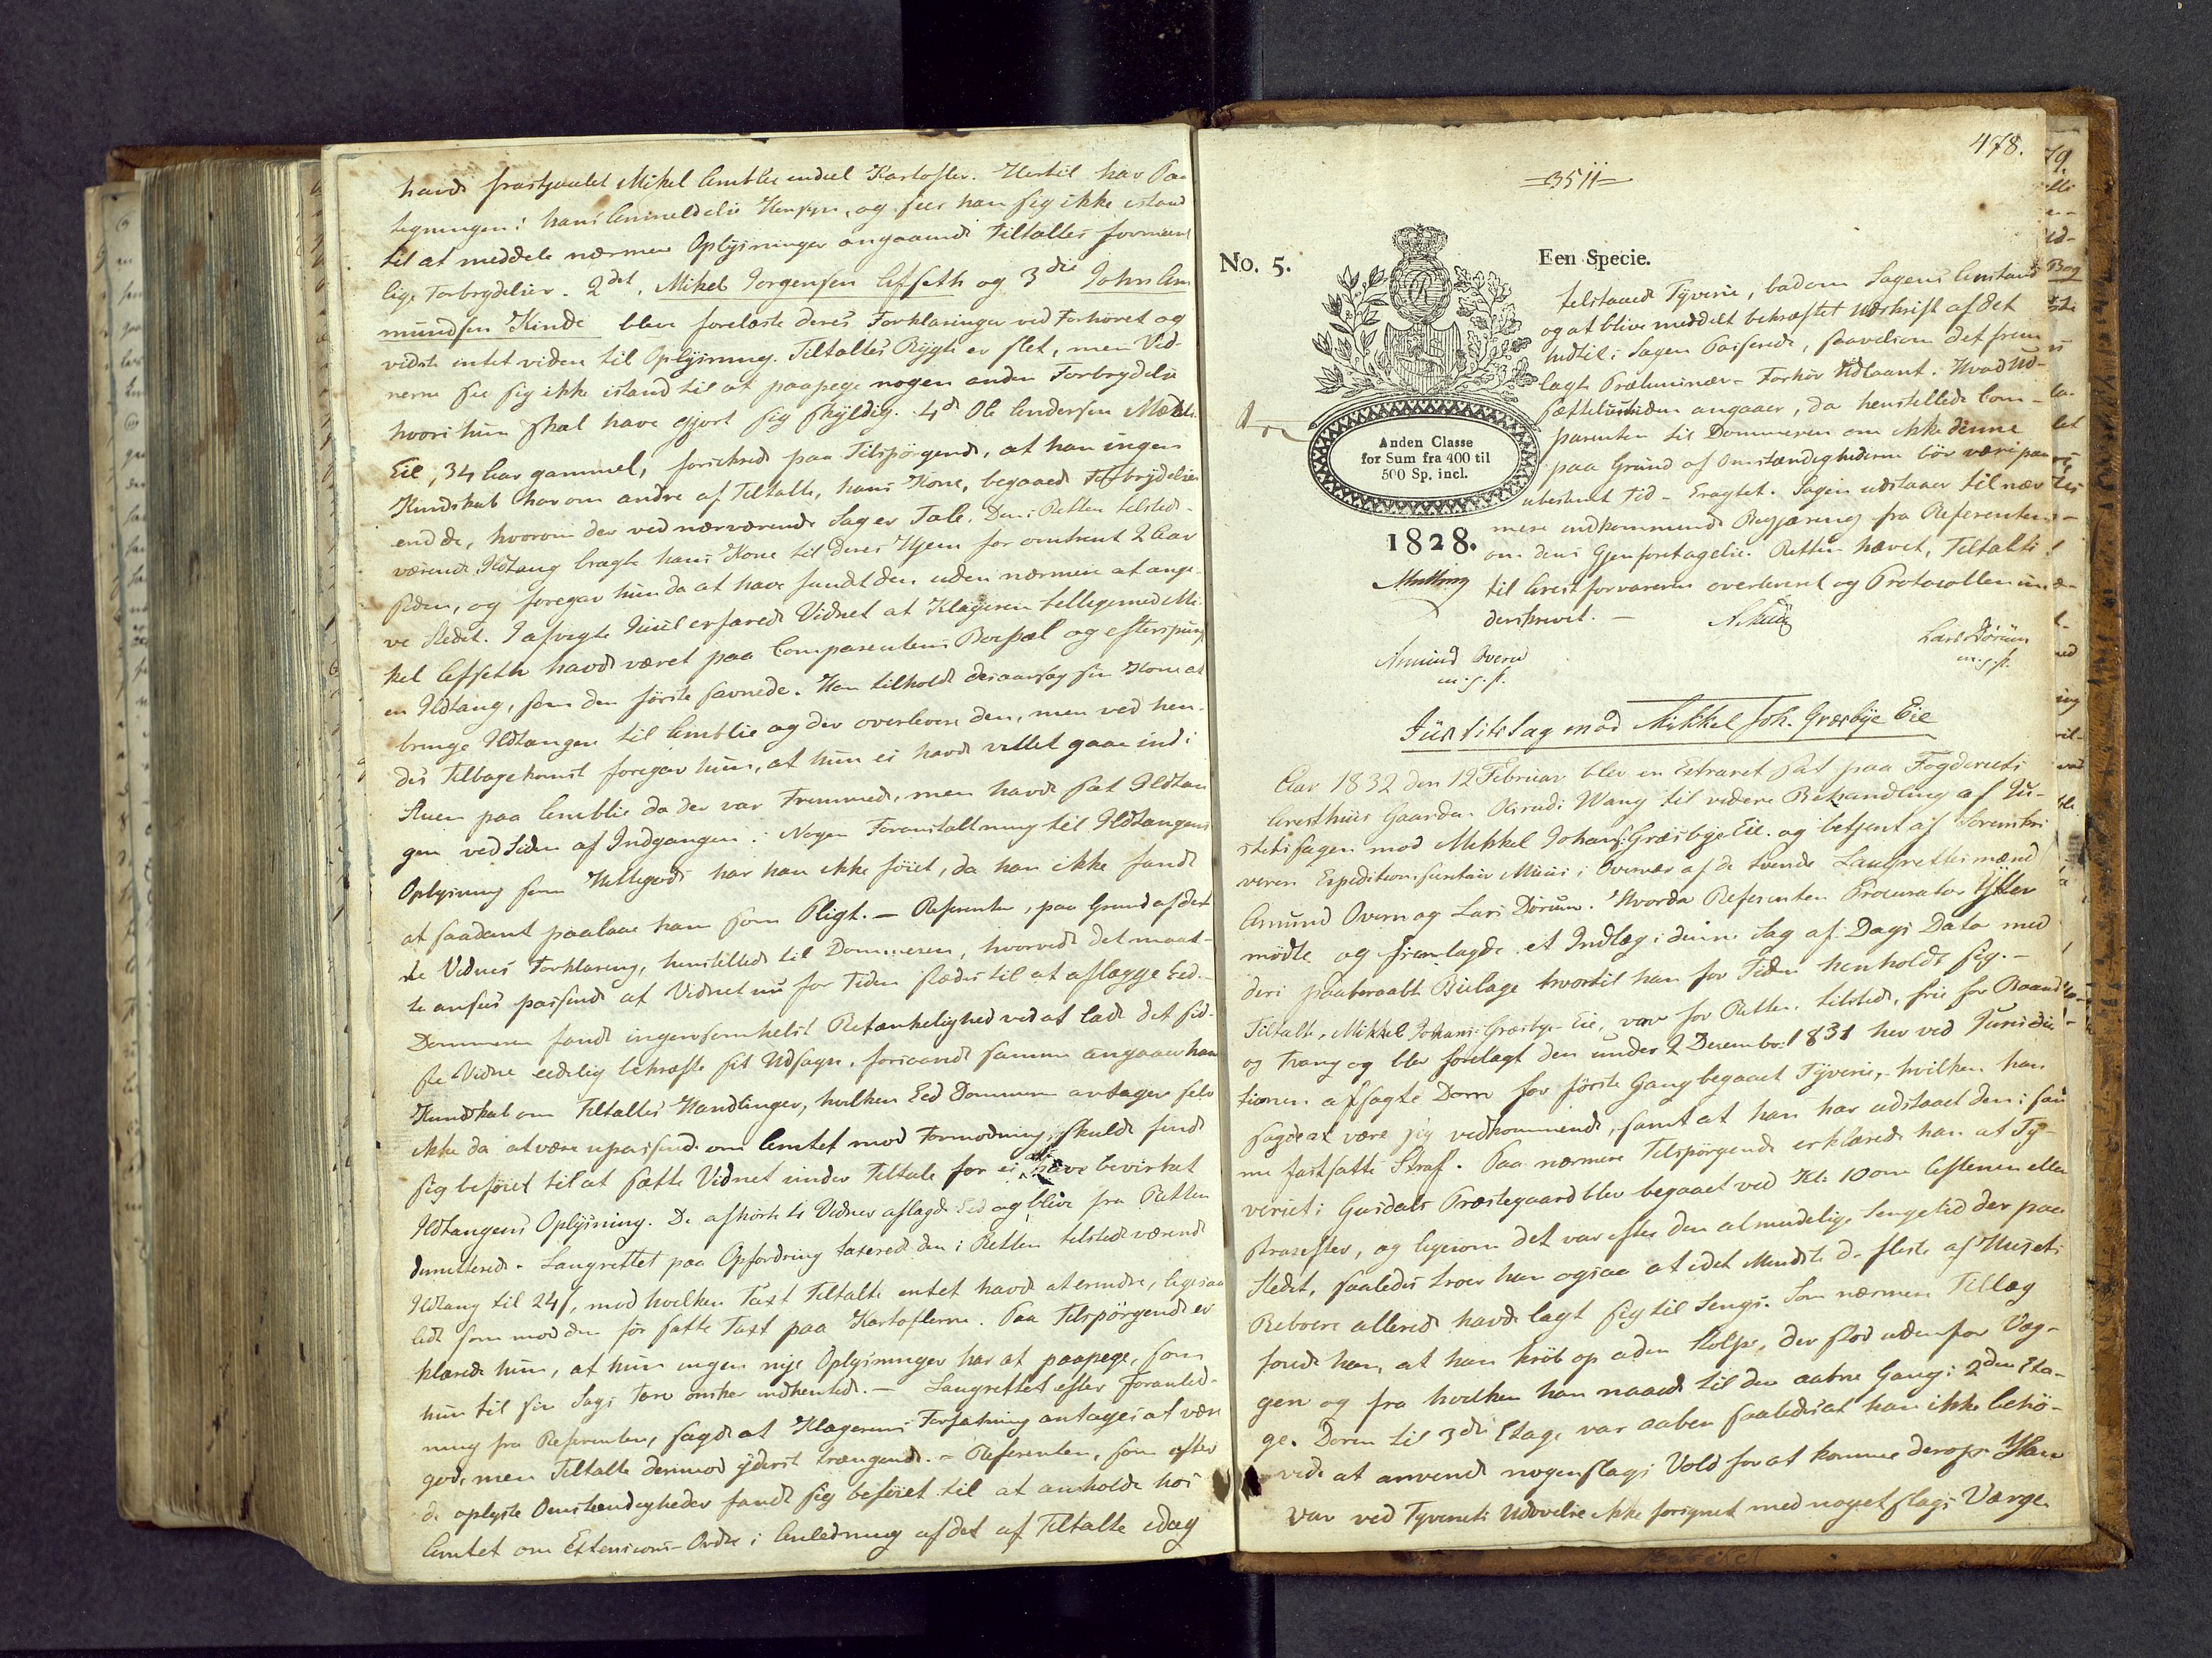 havde frastjaalet Mikel Amblie endeel Kartofler. Hertil har Paa
tegningen i hans Anmeldelse Hensyn, og seer han sig ikke istand
til at meddele nærmere Oplysninger angaaende Tiltaltes formeent
lige Forbrydelser. 2det, Mikel Jorgensen Afseth og 3die John Am
mundsen Kinde bleve forelæste deres Forklaringer ved Forhøret og
vidste intet viden til Oplysning. Tiltaltes Rygte er slet, men Vid-
nerne see sig ikke istand til at paapege nogen anden Forbrydelse
hvori hun skal have gjort sig skyldig. 4d Ole Andersen
Eie, 34 Aar gammel, forsikrede paa Tilspørgende, at han ingen
Kundskab har om andre af Tiltalte, hans Kone, begaaede Forbrydelser
end de, hvorom der ved nærværende Sag er Tale. Den i Retten tilsted-
værende Ildtang bragte hans Kone til deres Hjem for omtrent 2 Aar
siden, og foregav hun da at have fundet den uden nærmere at angi-
ve Stedet. I afvigte Juul erfarede Vidnet at Klageren tilligemed Mi-
kel Afseth havde været paa Comparentens Boepæl og efterspurgt
en Ildtang, som den første savnede. Han tilholdt desaarsag sin Kone at
bringe Ildtangen til Amblie og der overlevere den, men ved hen-
des Tilbagekomst foregav hun, at hun ei havde villet gaae ind i
Stuen paa Amblie da der var Fremmede, men havde sat Ildtan
gen ved Siden af Indgangen. Nogen Foranstaltning til Ildtangens
Oplysning som Hittegods har han ikke føiet, da han ikke fandt
at saadant paalaae ham som Pligt. – Referenten, paa Grund af det
te Vidnes Forklaring, henstillede til Dommeren, hvorvidt det maat-
te ansees passende at Vidnet nu for Tiden stædes til at aflægge Eed. –
Dommeren fandt ingensomhelst Betænkelighed ved at lade det sid-
ste Vidne eedelig bekræfte sit Udsagn, forsaavidt samme angaaer hans
Kundskab om Tiltaltes Handlinger, hvilken Eed Dommeren antager selv
ikke da at være upassende om Amtet mod Formodning skulde finde
sig beføiet til at sætte Vidnet under Tiltale for ei at have bevirket
Ildtangens Oplysning. De afhørte 4 Vidner aflagde Eed og bleve fra Retten
dimitterede. Laugrettet paa Opfordring taxerede den i Retten tilstedeværende
Ildtang til 24 ß, mod hvilken Taxt Tiltalte intet havde at erindre, ligesaa
lidt som mod den før satte Taxt paa Kartoflerne. Paa Tilspørgende er
klærede hun, at hun ingen nye Oplysninger har at paapege, som
hun til sin Sags Tarv ønsker indhentede. – Laugrettet efter Foranled-
ning fra Referenten, sagde at Klagerens Forfatning antages at være
god, men Tiltalte derimod yderst trængende. – Referenten, som efter
de oplyste Omstændigheder fandt sig beføiet til at anholde hos
Amtet om Extensions-Ordre i Anledning af det af Tiltalte idag
478.
=3511=
No. 5.
Een Specie.
Anden Classe
for Sum fra 400 til
500 Sp. incl.
1828.
tilstaaede Tyverie, bad om Sagens Anstand
og at blive meddelt bekræftet Udskrift af det
indtil i Sagen Passerede, saavelsom det frem
lagte Præliminær-Forhør Udlaant. Hvad Ud-
sættelsestiden angaaer, da henstillede Com-
parenten til Dommeren om ikke denne
paa Grund af Omstændighederne bør være paa
ubestemt Tid – Eragtet. Sagen udstaaer til nær
mere indkommende Begjæring fra Referenten
om dens Gjenforetagelse. Retten hævet, Tiltalte
til Arestforvareren overleveret og Protocollen un
derskrevet. –
Amund Overn
m.f.p.
Lars Dørum
m.f.p.
Justitssag mod Mikkel Joh. Græsbye Eie
Aar 1832 den 12 Februar blev en Extraret sat paa Fogderiets
Aresthuus Gaarden Wang til videre Behandling af Ju-
stitssagen mod Mikkel Johans: Græsbye Eie. og betjent af Sorenskri
veren Expeditionssecretair i Overvær af de tvende Laugrettesmænd
Amund Overn og Lars Dørum. Hvorda Referenten Procurator
mødte og fremlagde et Indlæg i denne Sag af Dags Dato med
deri paaberaabt Bielage hvortil han for Tiden henholdt sig. –
Tiltalte, Mikkel Johans: Græsbye Eie, var for Retten tilstede, frie for Baand
og Tvang og blev forelagt den under 2 Decembr: 1831 her ved Jurisdic-
tionen afsagte Dom for første Gang begaaet Tyverie, hvilken han
sagde at være sig vedkommende, samt at han har udstaaet den i sam
me fastsatte Straf. Paa nærmere Tilspørgende erklærede han at Ty-
veriet i Gusdals Præstegaard blev begaaet ved Kl: 10 om Aftenen eller
strax efter, og ligesom det var efter den almindelige Sengetid der paa
Stedet, saaledes troer han ogsaa at idet Mindste de fleste af Husets
Beboere allerede havde lagt sig til Sengs. Som nærmere Tillæg
forede han, at han krøb op ad en Stolpe, der stod udenfor Væg-
gen og fra hvilken han naaede til den aabne Gang i 2den Eta-
ge. Døren til 3die Etage var aaben saaledes at han ikke behø-
vede at anvende nogenslags Vold for at komme derop. Han
var ved Tyveriets Udøvelse ikke forsynet med nogetslags Værge